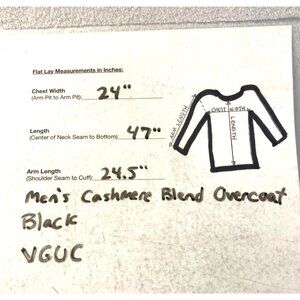 Flat Lay Measurements in Inches:
Chest Width
(Arm Pit to Arm Pit): 24"
Length
(Center of Neck Seam to Bottom): 47"
Arm Length
(Shoulder Seam to Cuff): 24.5"
Men's Cashmere Blend Overcoat
Black
VGUC
ARM LENGTH
CHEST WIDTH
LENGTH